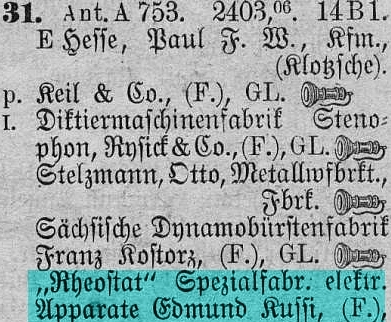 31. Ant. A 753. 2403,06. 14B1.
E Hesse, Paul F. W., Kfm.,
(Klotzsche).
p. Keil & Co., (F.), GL.
I. Diktiermaschinenfabrik Steno-
phon, Rysick & Co., (F.), GL.
Stelzmann, Otto, Metallwfbrkt.,
Fbrk.
Sächsische Dynamobürstenfabrik
Franz Kostorz, (F.), GL.
„Rheostat“ Spezialfabr. elektr.
Apparate Edmund Kussi, (F.),